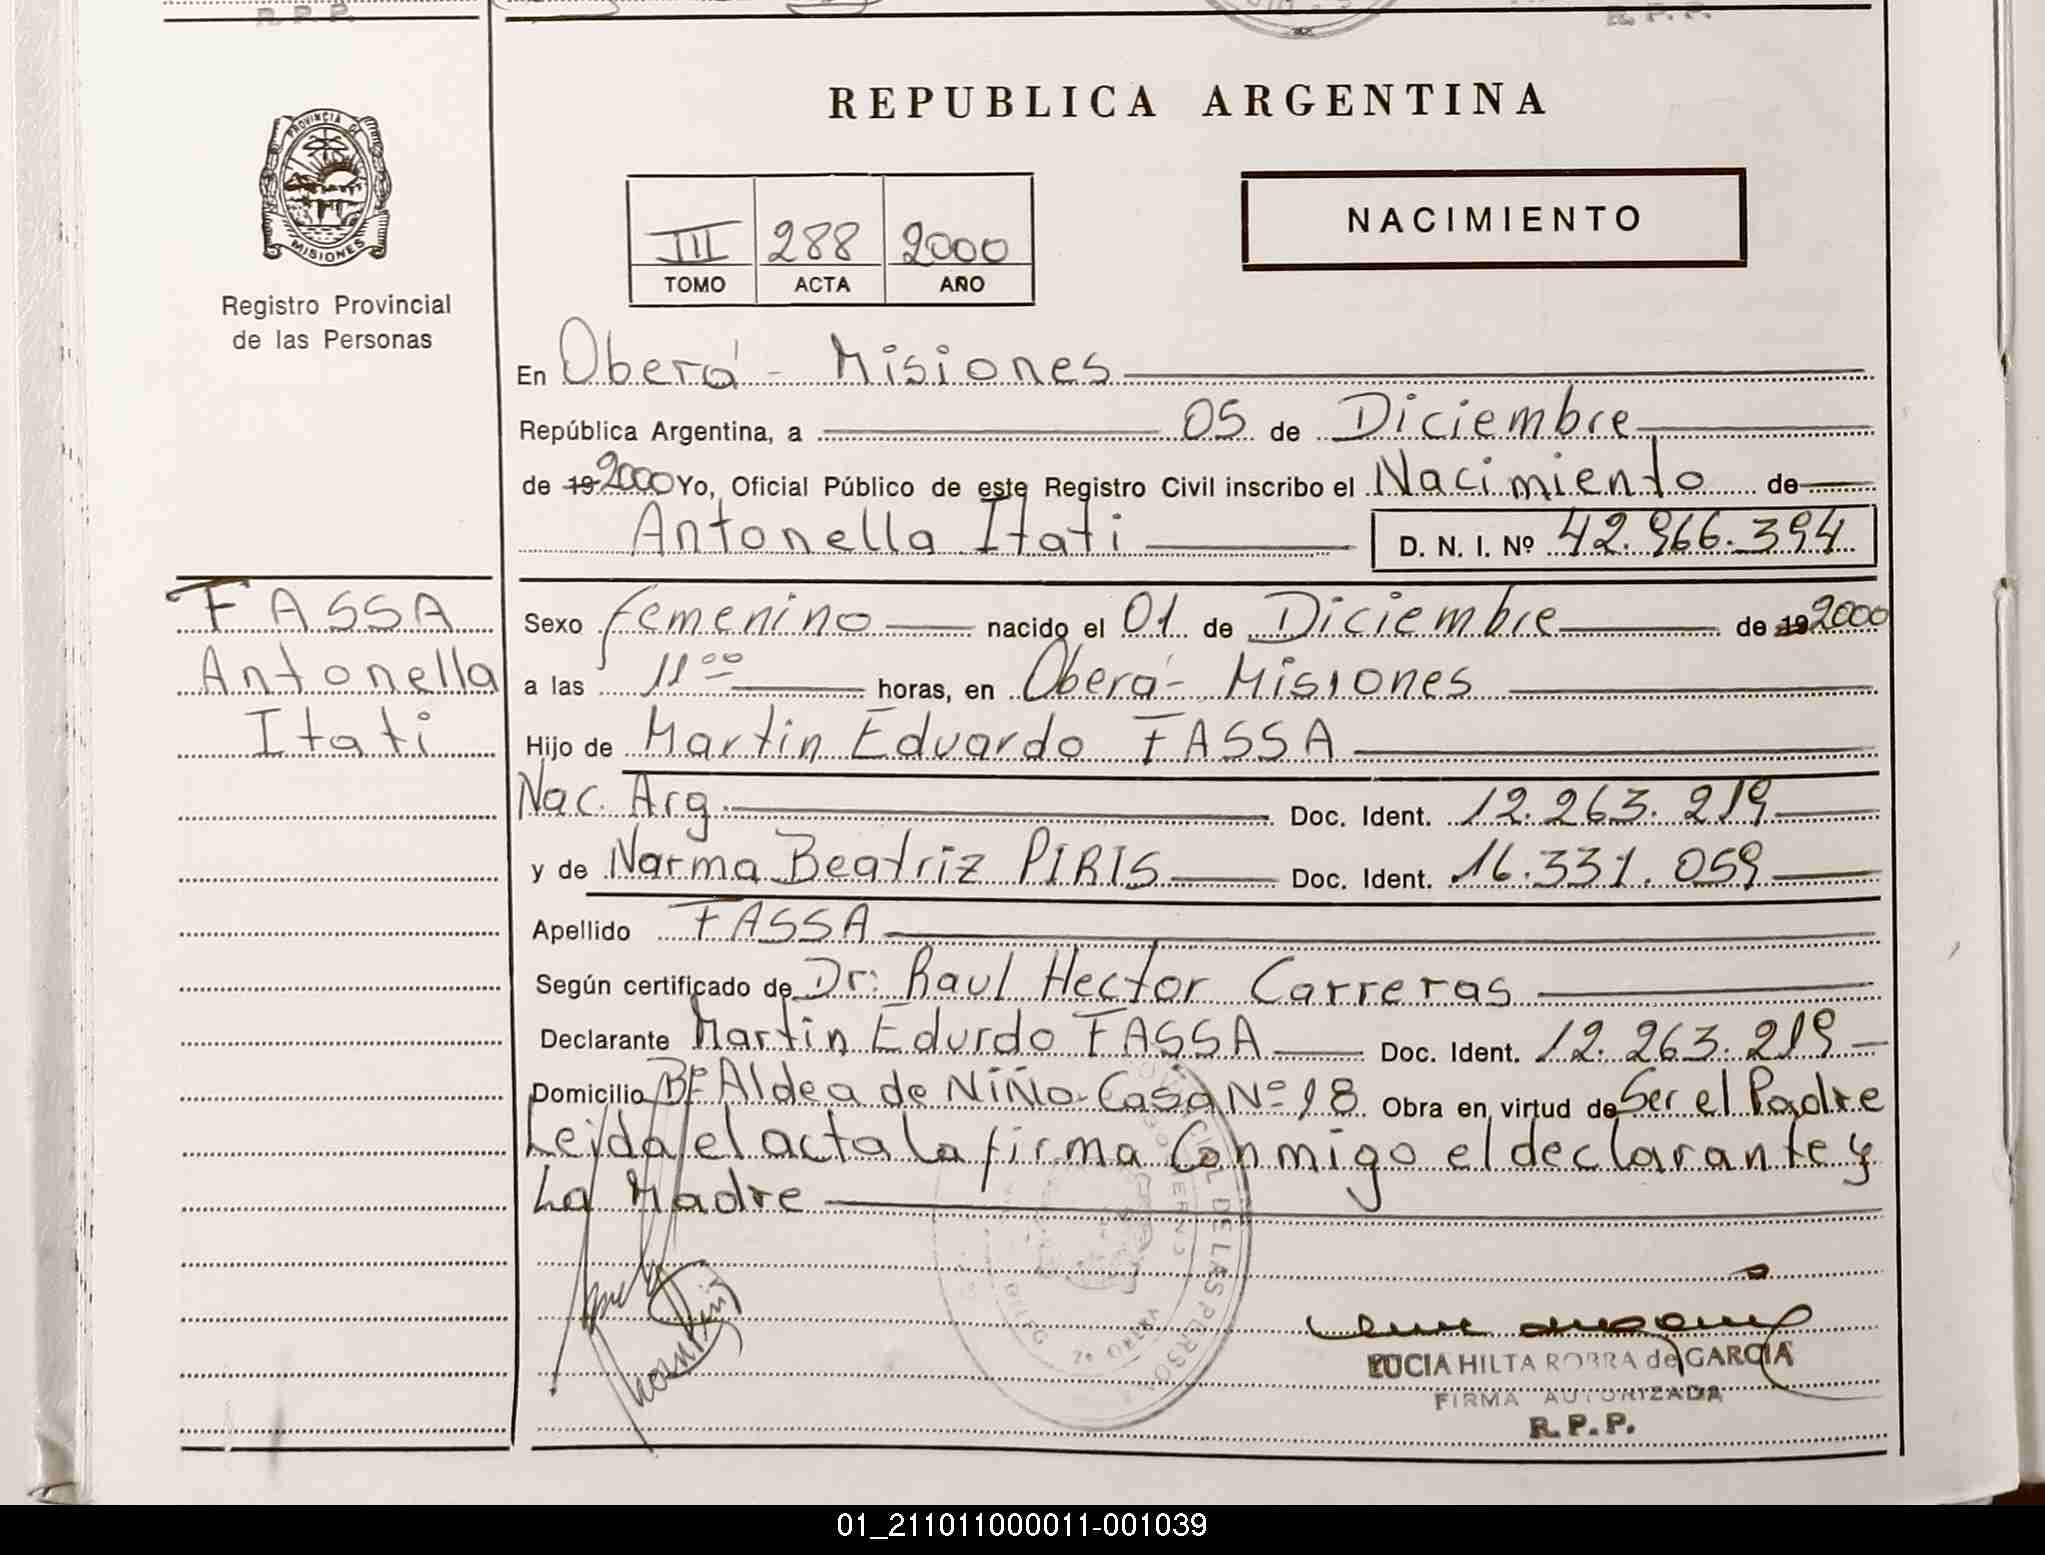 R. P. P.
R. P. P.
REPUBLICA ARGENTINA
PROVINCIA DE
MISIONES
Registro Provincial
de las Personas
NACIMIENTO
III 288 2000
TOMO ACTA AÑO
En Oberá - Misiones
República Argentina, a 05 de Diciembre
de 19 2000 Yo, Oficial Público de este Registro Civil inscribo el Nacimiento de
Antonella Itati D. N. I. Nº 42.966.394
FASSA
Antonella
Itati
Sexo femenino nacido el 01 de Diciembre de 19 2000
a las 11 00 horas, en Oberá - Misiones
Hijo de Martin Eduardo FASSA
Nac. Arg. Doc. Ident. 12.263.219
y de Narma Beatriz PIRIS Doc. Ident. 16.331.059
Apellido FASSA
Según certificado de Dr: Raul Hector Carreras
Declarante Martin Edurdo FASSA Doc. Ident. 12.263.219
Domicilio Bº Aldea de NiÑo Casa Nº 18 Obra en virtud de Ser el Padre
Leida el acta la firma Conmigo el declarante y
La Madre
LUCIA HILTA ROBRA de GARCIA
FIRMA AUTORIZADA
R. P. P.
01_211011000011-001039